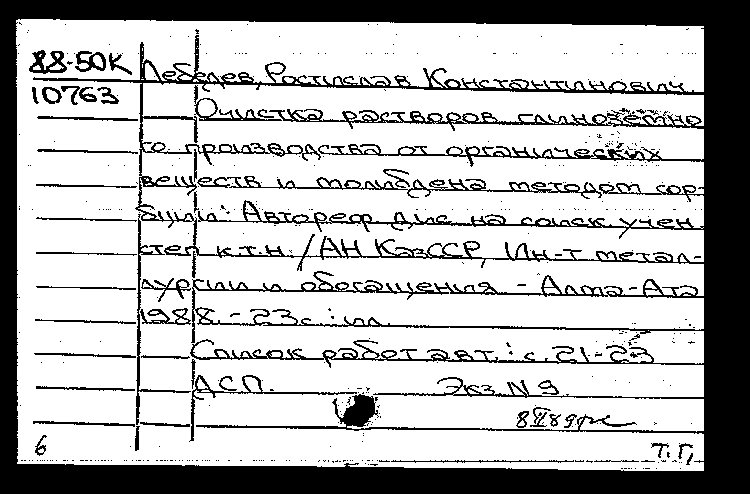 88-50К Лебедев, Ростислав Константинович.
10763 Очистка растворов глиноземно
го производства от органических
веществ и молибдена методом сор-
бции: Автореф дис на соиск. учен.
степ к.т.н. / АН КазССР, Ин-т метал-
лургии и обогащения - Алма-Ата
1988. - 23с.: ил.
Список работ авт.: с. 21-23
ДСП. Экз. N 9.
6 Т. Г,